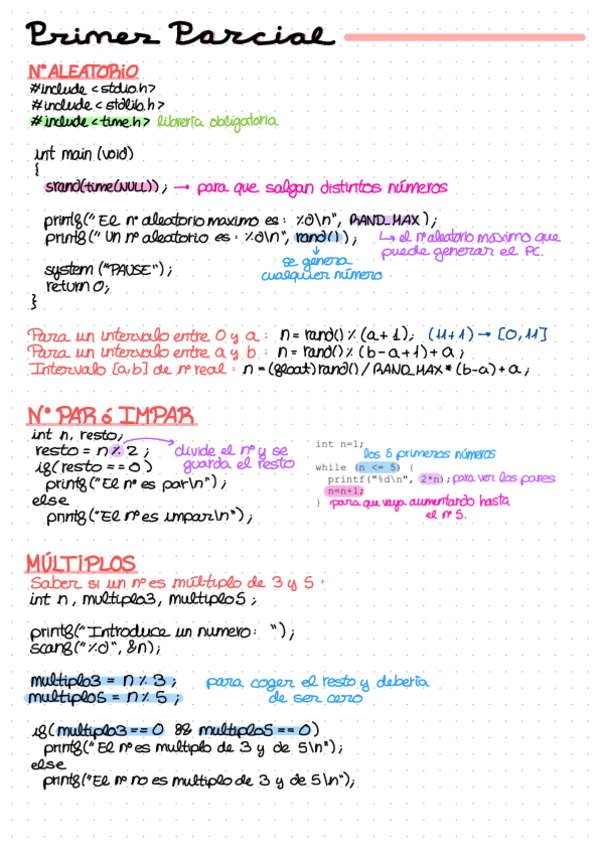 Primer Parcial
Nº ALEATORIO
#include <stdio.h>
#include <stdlib.h>
#include <time.h> librería obligatoria
int main (void)
{
srand(time(NULL)); → para que salgan distintos números
printf("El nº aleatorio maximo es: %d\n", RAND_MAX);
printf("Un nº aleatorio es: %d\n", rand()); ↳ el nº aleatorio maximo que
puede generar el PC.
↓
se genera
cualquier número
system ("PAUSE");
return 0;
}
Para un intervalo entre 0 y a: n = rand() % (a+1); (11+1) → [0,11]
Para un intervalo entre a y b: n = rand() % (b-a+1)+a;
Intervalo [a,b] de nº real: n = (float)rand() / RAND_MAX * (b-a)+a;
Nº PAR ó IMPAR
int n, resto;
resto = n % 2; → divide el nº y se
guarda el resto
if(resto == 0)
printf("El nº es par\n");
else
printf("El nº es impar\n");
int n=1;
los 5 primeros números
while (n <= 5) {
printf("%d\n", 2*n); para ver los pares
n=n+1;
} para que vaya aumentando hasta
el nº 5.
MÚLTIPLOS
Saber si un nº es múltiplo de 3 y 5:
int n, multiplo3, multiplo5;
printf("Introduce un numero: ");
scanf("%d", &n);
multiplo3 = n % 3; para coger el resto y debería
multiplo5 = n % 5; de ser cero
if(multiplo3 == 0 && multiplo5 == 0)
printf("El nº es multiplo de 3 y de 5\n");
else
printf("El nº no es multiplo de 3 y de 5\n");